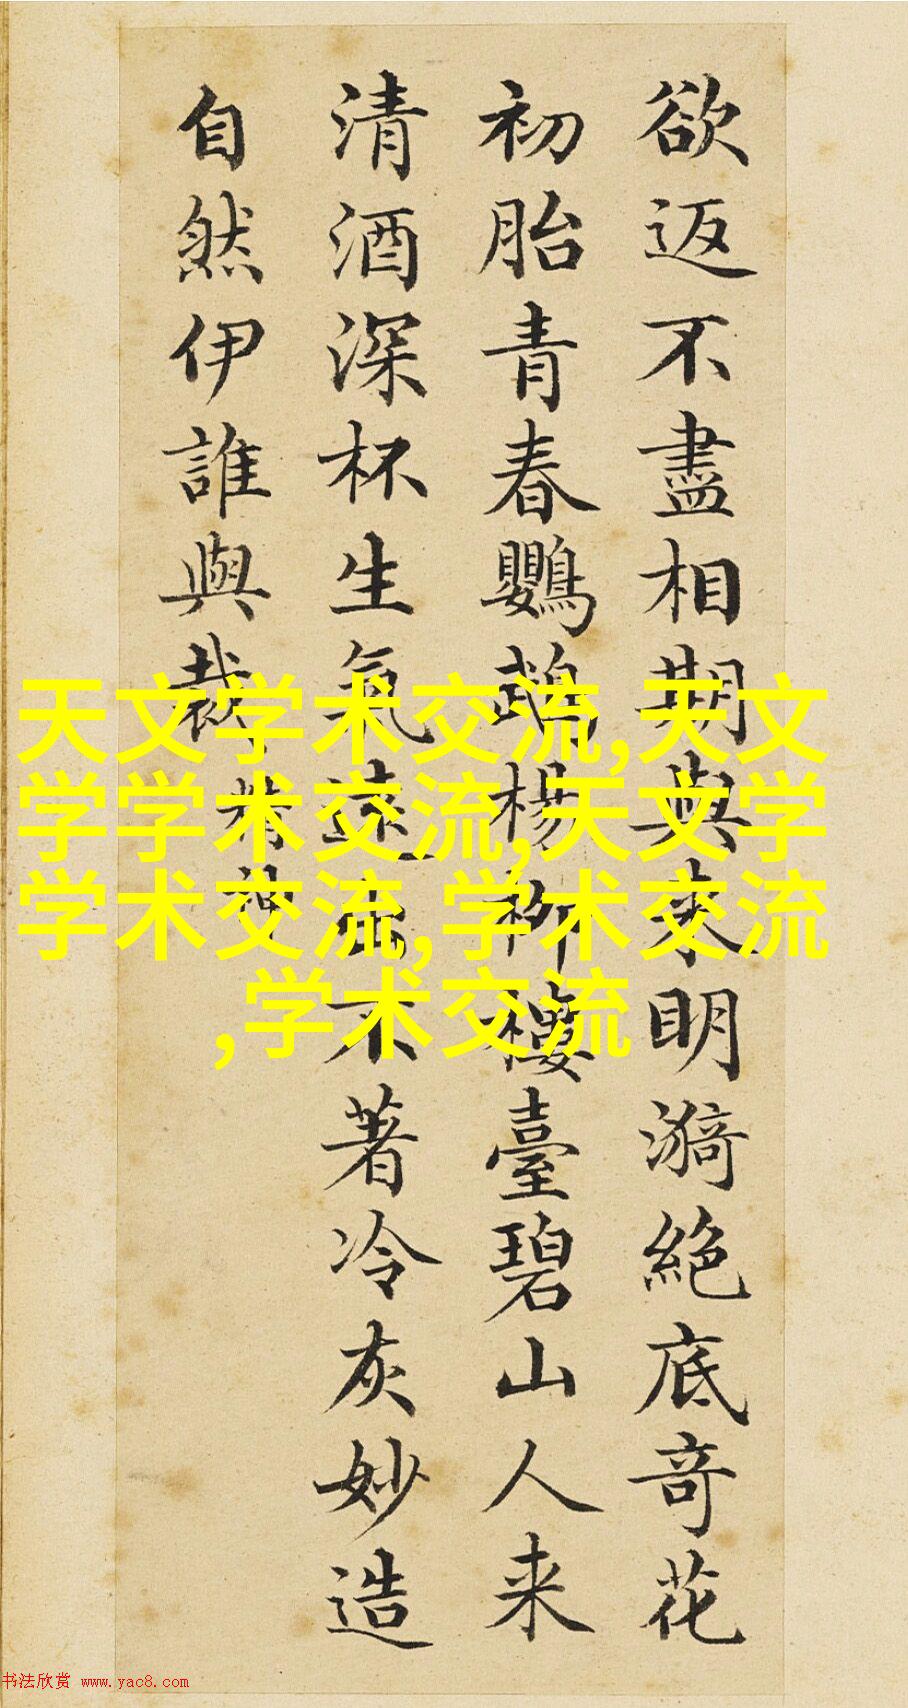 欲返不盡相期與來明漪絶底奇花
初胎青春鸚鵡楊柳樓臺碧山人来
清酒深杯生氣遠出不著冷灰妙造
自然伊誰與裁
精神
天文学术交流,天文
学学术交流,天文学
学术交流,学术交流
,学术交流
书法欣赏 www.yac8.com